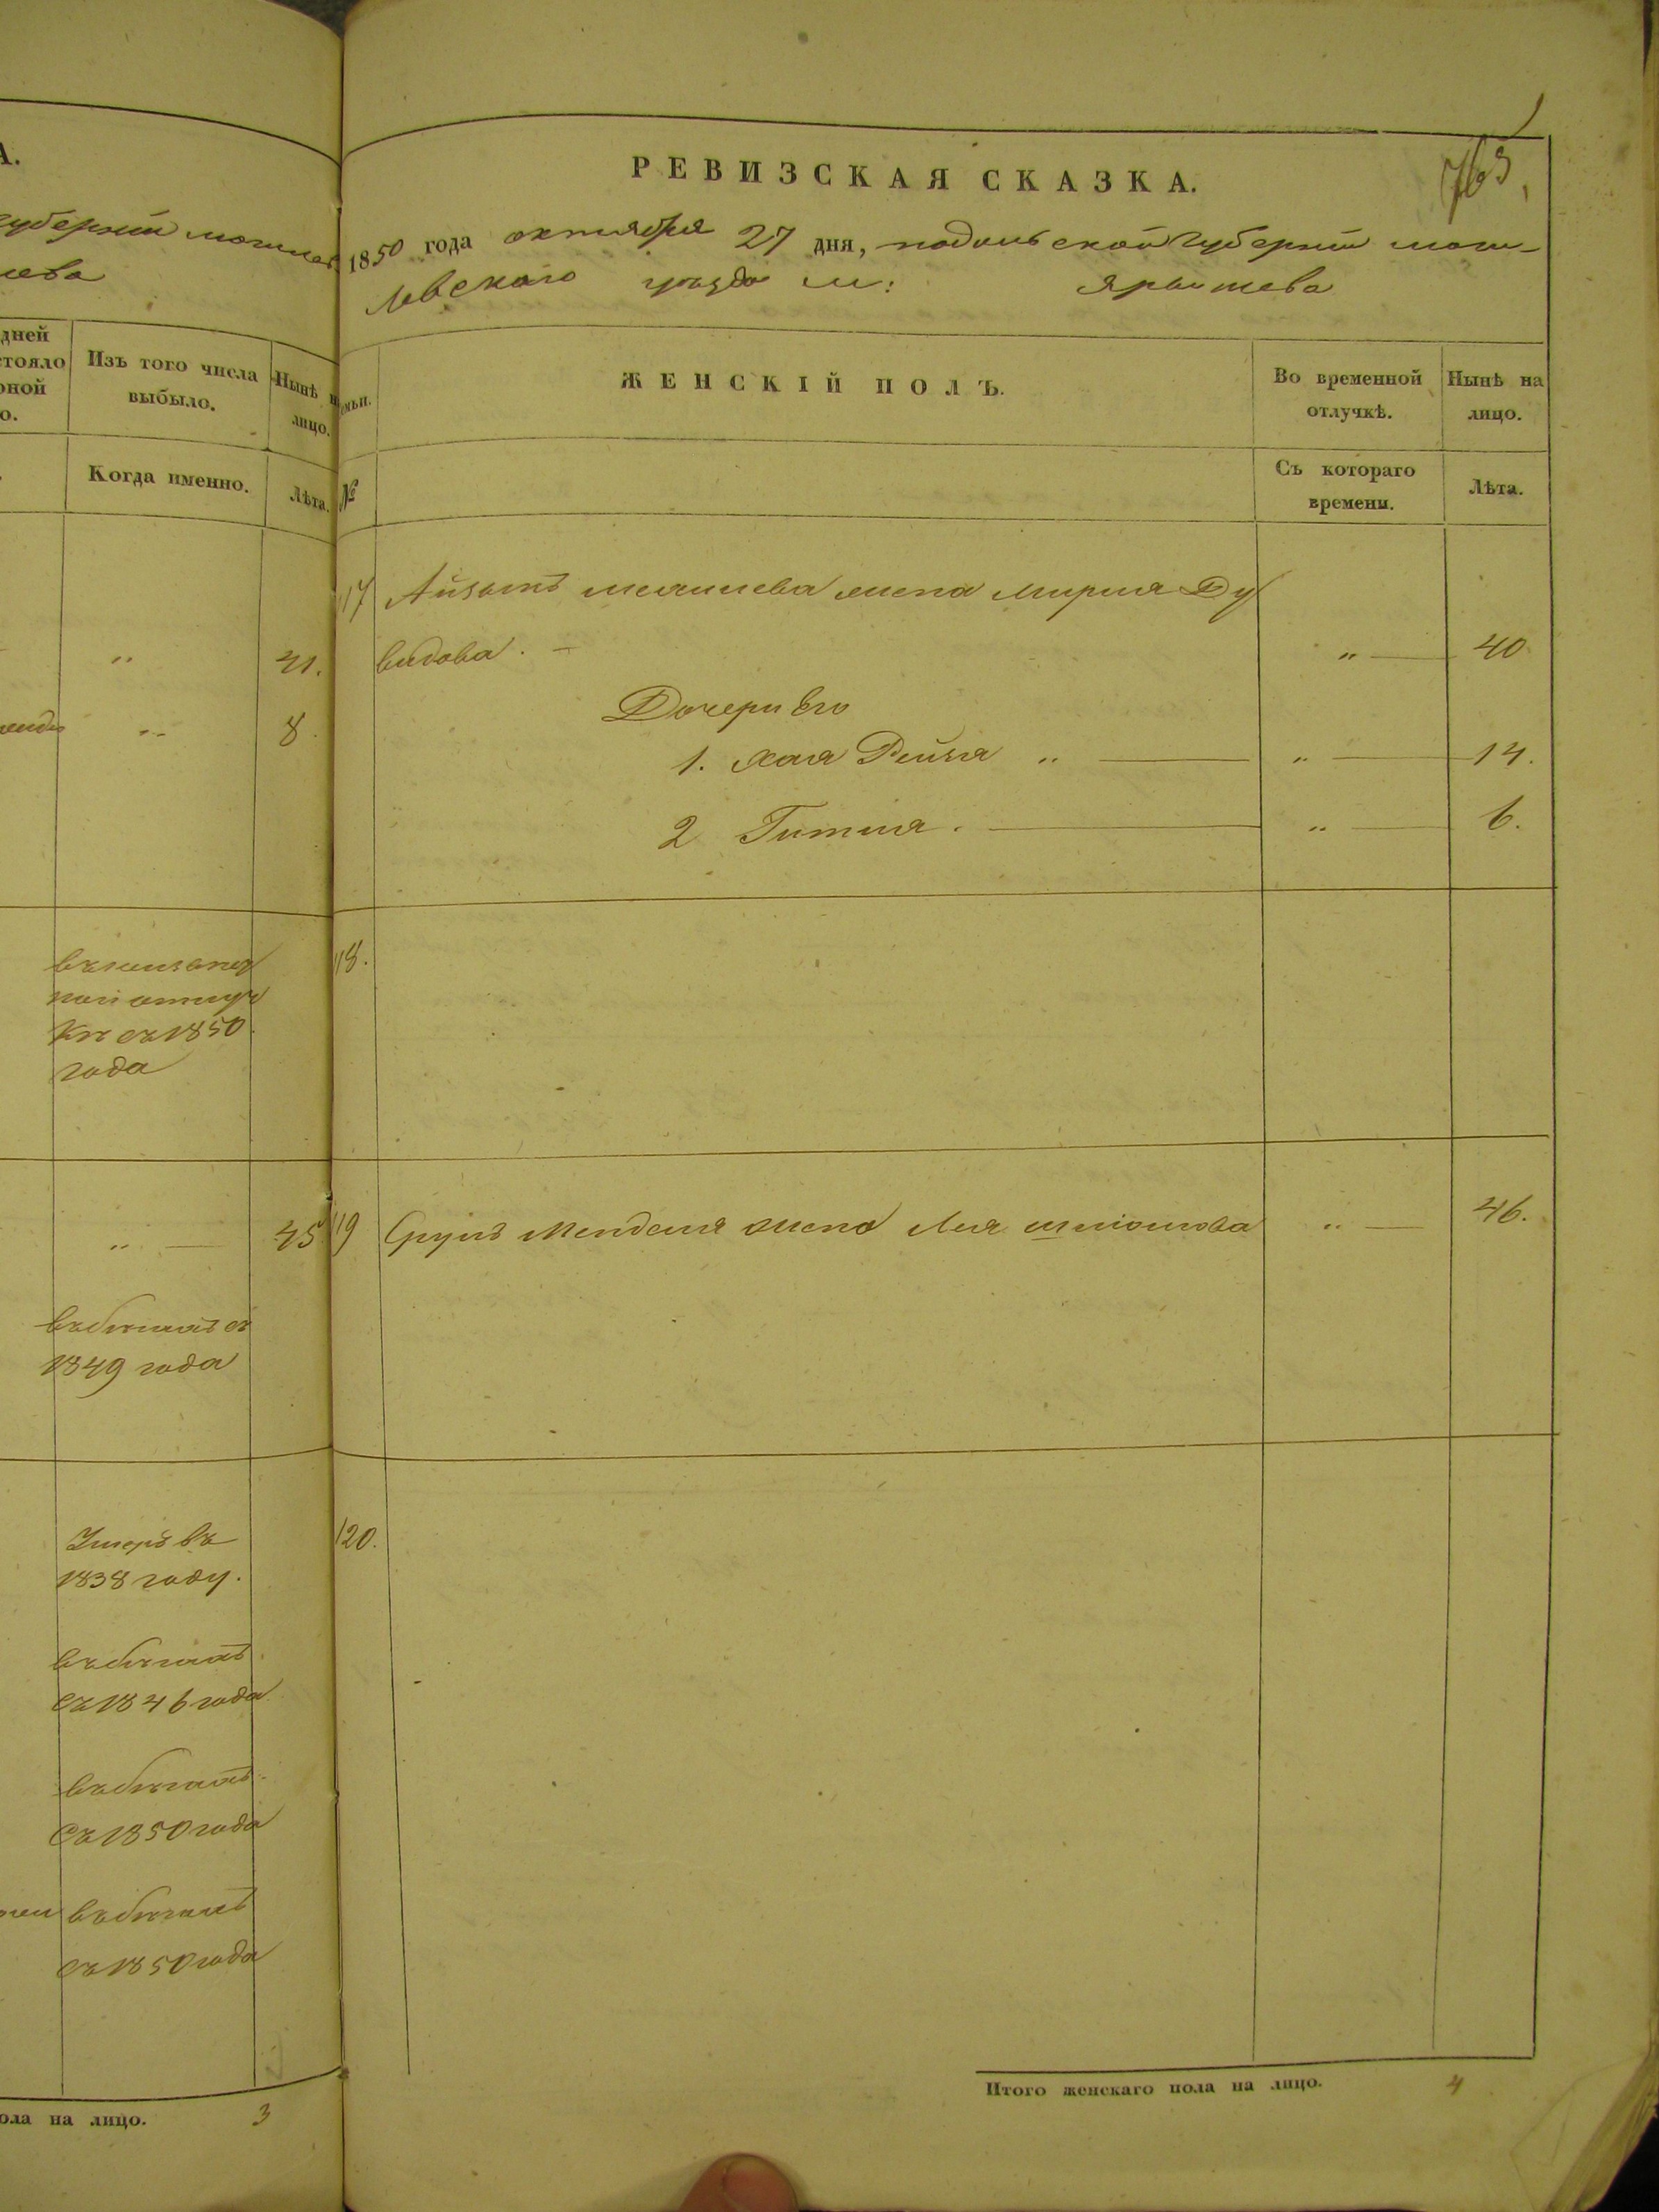 А.
губернии могилев
шева
дней
стояло
рной
о.
Изъ того числа
выбыло.
Нынѣ н
лицо.
Когда именно.
Лѣта.
" 41.
" 8.
въ
Кѣ съ 1850
года
" — 45
въ бѣгахъ съ
1849 года
Умеръ въ
1838 году.
въ бѣгахъ
съ 1846 года
въ бѣгахъ
съ 1850 года
въ бѣгахъ
съ 1850 года
ола на лицо. 3
763
РЕВИЗСКАЯ СКАЗКА.
1850 года октября 27 дня, подольской губернии моги-
левского уезда м: ярышева
емьи.
ЖЕНСКІЙ ПОЛЪ.
Во временной
отлучкѣ.
Нынѣ на
лицо.
№
Съ котораго
времени.
Лѣта.
117 жена Мирля Ду
видова. — " — 40
Дочери Его
1. Хая Рейзя " — " — 14.
2 Гитля. — " — 6.
118.
119 Сруль Менделя жена Лея " — 46.
120.
Итого женскаго пола на лицо. 4